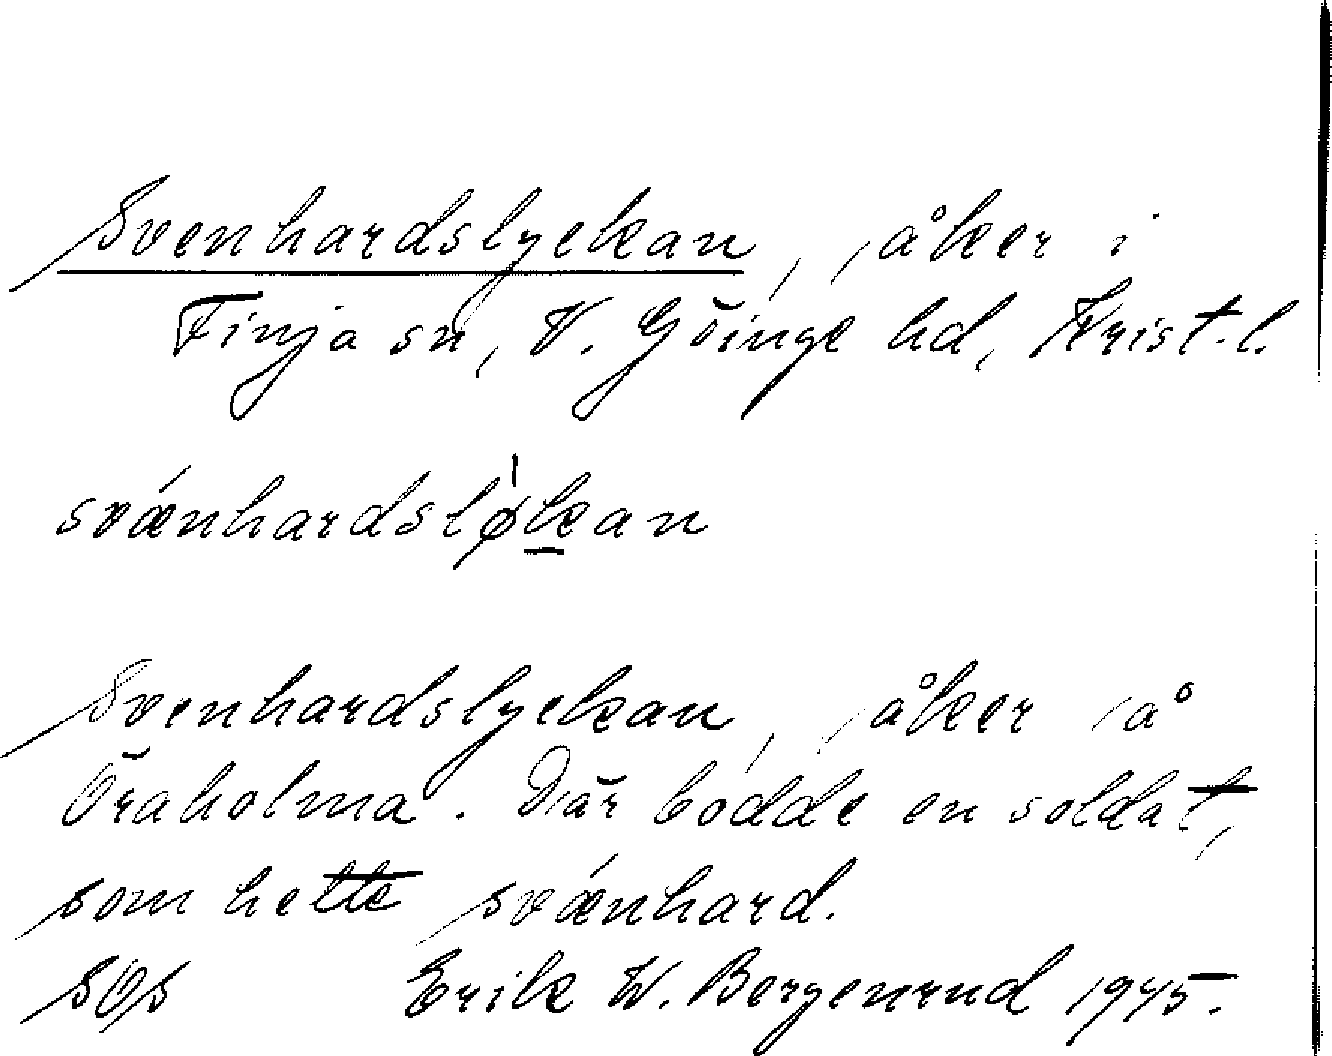 Svenhardslyckan, åker i
Finja sn, V. Göinge hd, Krist.l.
svǽnhardslø̍k̲an
Svenhardslyckan, åker å
Öraholma. Där bodde en soldat,
som hette svǽnhard.
SOS Erik W. Bergenrud 1945.